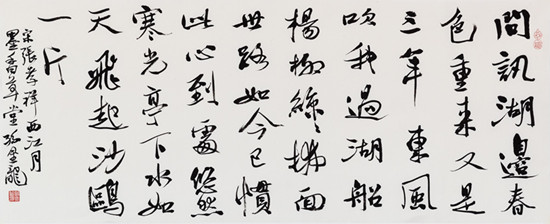 問訊湖邊春
色重來又是
三年東風
吹我過湖船
楊柳絲々拂面
世路如今已慣
此心到處悠然
寒光亭下水如
天飛起沙鷗
一片
宋張孝祥西江月
墨香草堂龍